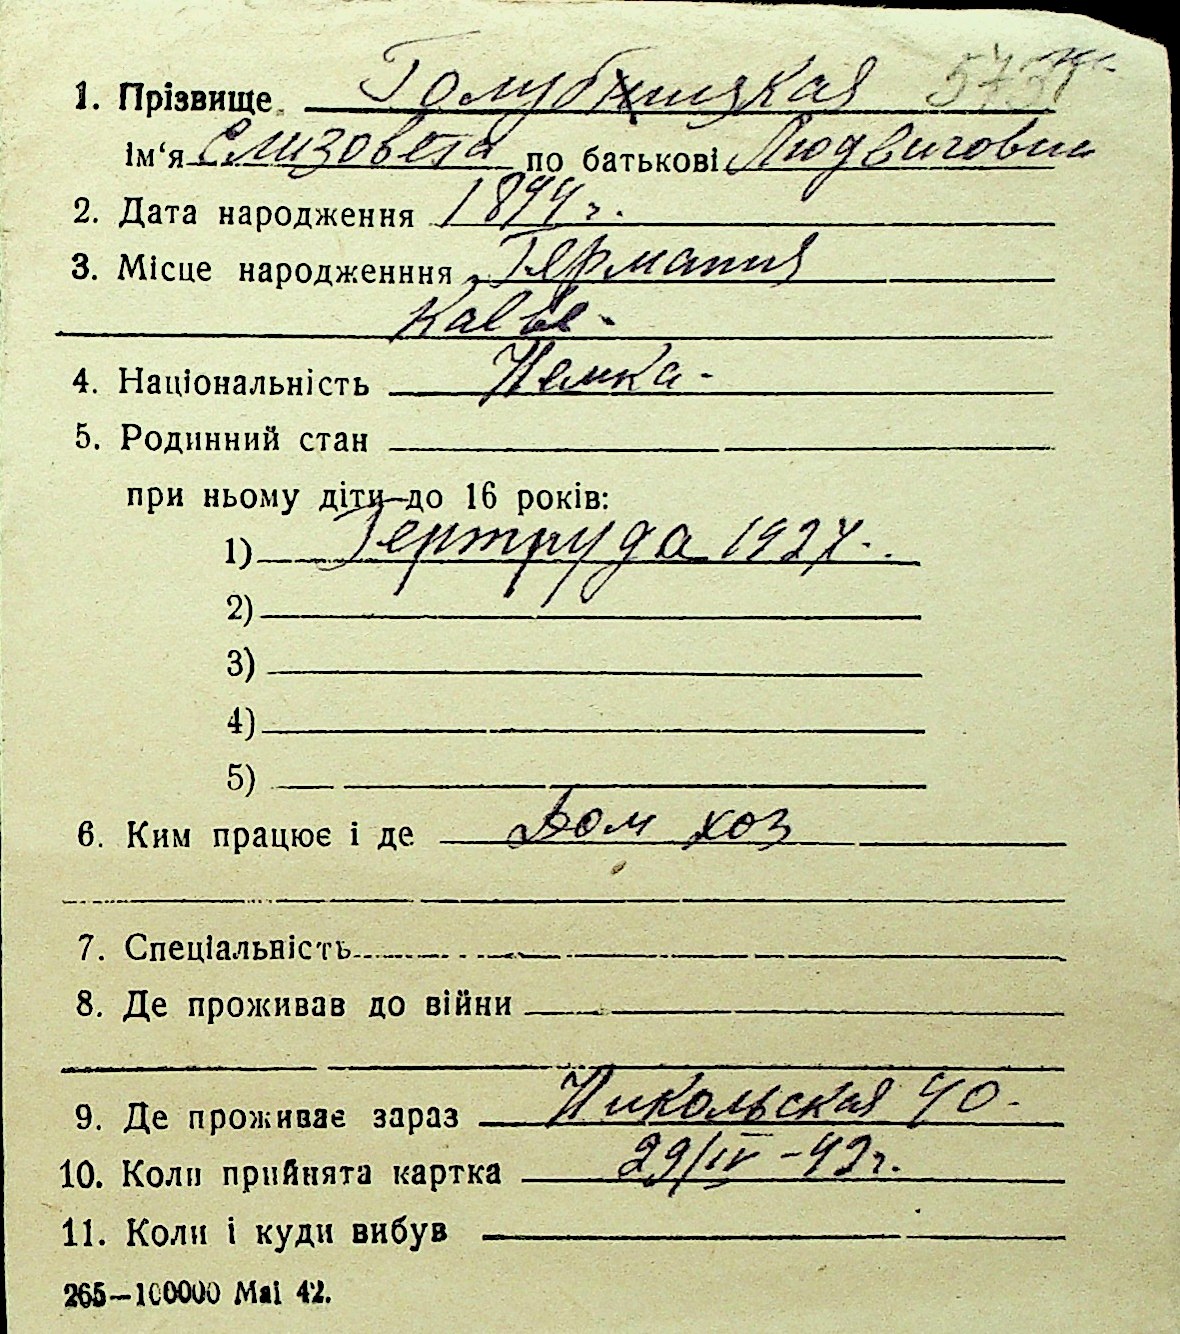 1. Прізвище Голубницкая 573
Ім‘я Елизовета по батькові Людвиговн
2. Дата народження г.
3. Місце народженння Германия
4. Національність Немка -
5. Родинний стан
при ньому діти до 16 років:
1) Гертруда 1927
2)
3)
4)
5)
6. Ким працює і де Дом хоз
7. Спеціальність
8. Де проживав до війни
9. Де проживає зараз Никольская 40 -
10. Коли прийнята картка 29/IV - 42 г.
11. Коли і куди вибув
265—100000 Маі 42.